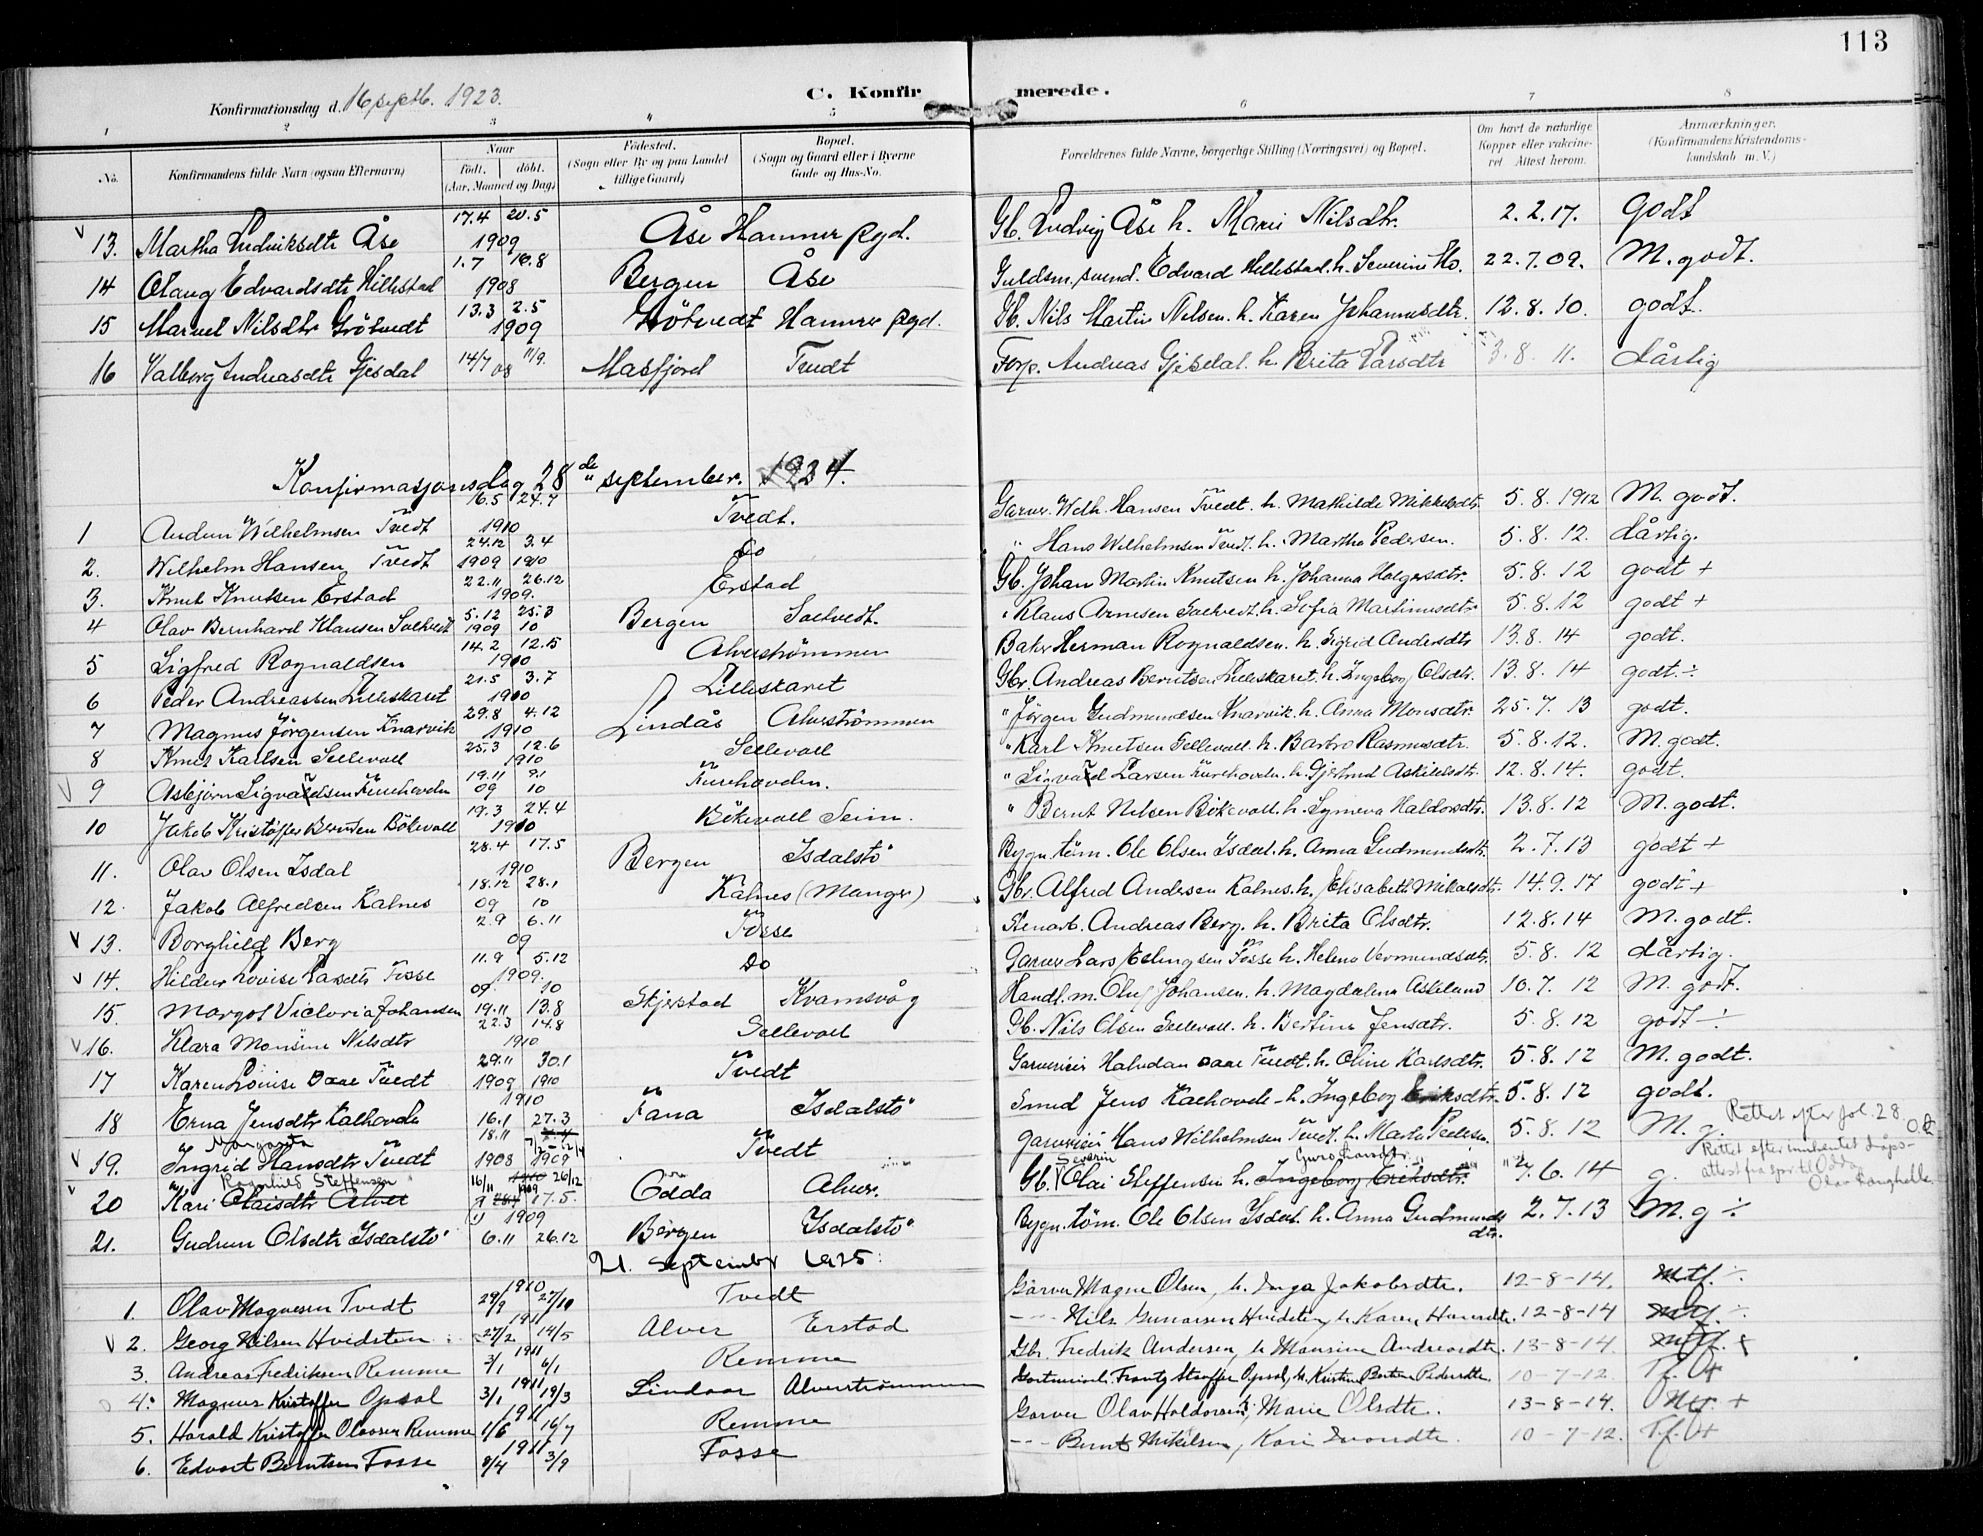 113
Konfirmationsdag d. 16 septb. 1923. C. Konfirmerede.
1 2 3 4 5 6 7 8
No. Konfirmandens fulde Navn (ogsaa Efternavn) Naar født. døbt. (Aar, Maaned og Dag) Fødested. (Sogn eller By og paa Landet tillige Gaard) Bopæl. (Sogn og Gaard eller i Byerne Gade og Hus-No. Forældrenes fulde Navne, borgerlige Stilling (Næringsvei) og Bopæl. Om havt de naturlige Kopper eller vaccineret Attest herom. Anmærkninger. (Konfirmandens Kristendomskundskab m. V.)
13. Martha Ludviksdtr Åse 17.4 20.5 1909 Åse Hammer pgd. Gb. Ludvig Åse h. Marie Nilsdtr. 2.2.17. godt
14 Olaug Edvardsdtr Hillestad 1.7 16.8 1908 Bergen Åse Guldsm. svend. Edvard Hillestad. h. Severine 22.7.09. M. godt.
15 Marvel Nilsdtr Grötvedt 13.3 2.5 1909 Grötvedt Hammer pgd. Gb. Nils Martin Nilsen. h. Karen Johannesdtr. 12.8.10. godt.
16 Valborg Andreasdtr Gjesdal 14/7 08 11/9. Masfjord Tvedt Andreas Gjesdal. h. Brita Larsdtr 3.8.11. dårlig
Konfirmasjonsdag 28de september. 1924.
1 Wilhelmsen Tvedt 16.5 24.7 1910 Tvedt. Garver. Wilh. Hansen Tvedt. h. Mathilde Mikkelsdtr. 5.8.1912 M. godt.
2. Wilhelm Hansen Tvedt 24.12 3.4 1909 1910 Do " Hans Wilhelmsen Tvedt. h. Martha Pedersen. 5.8.12. dårlig.
3. Knut Knutsen Erstad 22.11 26.12 1909. Erstad Gb. Johan Martin Knutsen h. Johanna Holgersdtr. 5.8.12 godt +
4 Olav Bernhard Klausen Soltvedt 5.12 25.3 1909 10 Bergen Soltvedt. " Klaus Arnesen Soltvedt. h. Sofia Martinusdtr 5.8.12 godt +
5 Sigfred Rognaldsen 14.2 12.5 1910 Alverstrømmen Baker Herman Rognaldsen. h. Sigrid Andersdtr 13.8.14 godt.
6 Peder Andreassen Lilleskaret 21.5 3.7 1910 Lilleskaret Gbr. Andreas Berntsen Lilleskaret. h. Ingeborg Olsdtr. 13.8.14 godt ÷
7 Magnus Jörgensen Knarvik 29.8 4.12 1910 Lindås Alverströmmen " Jörgen Gudmundsen Knarvik. h. Anna Monsdtr. 25.7.13 godt.
8 Knut Karlsen Sellevoll 25.3 12.6 1910 Sellevoll " Karl Knutsen Sellevoll. h. Barbro Rasmusdtr. 5.8.12. M. godt.
9 Asbjørn Sigvaldsen Furehovden 19.11 9.1 09 10 Furehovden. " Sigvald Larsen Furehovden. h. Gjertrud Askildsdtr. 12.8.14. godt.
10 Jakob Kristoffer Berntsen Bökevoll 19.3 24.4 1910 Bökevoll Seim. " Bernt Nilsen Bökevoll. h. Synneva Haldorsdtr. 13.8.12 M. godt.
11. Olav Olsen Isdal 28.4 17.5 1910 Bergen Isdalstö Bygn. töm. Ole Olsen Isdal. h. Anna Gudmundsdtr. 2.7.13 godt +
12. Jakob Alfredsen Kalnes 18.12 28.1 09 10 Kalnes (Manger) Gbr. Alfred Andersen Kalnes. h. Elisabeth Mikalsdtr. 14.9.17 godt +
13. Borghild Berg 2.9 6.11 09 Fosse Andreas Berg. h. Brita Olsdtr. 12.8.14 M. godt.
14. Hildur Lovise Larsdtr Fosse 11.9 5.12 1909. Do Garver Lars Erlingsen Fosse h. Helene Vermundsdtr. 5.8.12 dårlig.
15 Margot Victoria Johansen 09 10 19.11 13.8 Stjerstad Kvamsvåg Handl. m. Oluf Johansen. h. Magdalena Askeland 10.7.12 M. godt.
16. Klara Monsine Nilsdtr 22.3 14.8 1910 Sellevoll Gb. Nils Olsen Sellevoll. h. Bertine Jensdtr. 5.8.12 godt ÷
17 Karen Louise Daae Tvedt 29.11 30.1 1909 1910 Tvedt Garverieier Halvdan Daae Tvedt. h. Oline Karlsdtr. 5.8.12 M. godt.
18 Erna Jensdtr Kalhovde 1910 16.1 27.3 Fana Isdalstö Smed Jens Kalhovde - h. Ingeborg Eriksdtr. 5.8.12 godt.
19. Ingrid Margareta Hansdtr Tvedt 18.11 1908 1909 Tvedt garverieier Hans Wilhelmsen Tvedt. h. Marta Pedersen. 5.8.12 M. g. Rettet efter fol. 28 O.L.
20 Kari Ragnhild Steffensen Olaisdtr Alver 16/11 26/12 1909 17.5. Odda Alver. Gb. Severin Olai Steffensen h. Guro Larsdtr. Ingeborg Eriksdtr. 7.6.14 g. Rettet efter innhentet dåpsattest fra sprt. til Odda Olav Langhelle.
21. Gudrun Olsdtr Isdalstö 1909 6.11 26.12 Bergen Isdalstö Bygn. töm. Ole Olsen Isdal. h. Anna Gudmundsdtr. 2.7.13 M. g ÷
21. September 1925:
1. Olav Magnesen Tvedt 1910 29/9 27/10 Tvedt Garver Magne Olsen, h. Inga Jakobsdtr. 12-8-14. mtf. ÷
2. Georg Nilsen Hvidsten 1911 27/2 14/5 Alver Erstad --- Nils Gunarsen Hvidsten, h. Karen Hansdtr. 12-8-14 mtf. ÷
3. Andreas Fredriksen Remme 1911 3/1 6/1 Remme Gbr. Fredrik Andersen, h. Monsine Andreasdtr. 13-8-14. mtf. +
4. Magnus Kristoffer Opsal 1911 3/1 19/3 Lindaas Alverstrømmen Frantz Opsal, h. Kristine Bertine Pedersdtr. 10-7-12.
5. Harald Kristoffer Olavsen Remme 1911 1/6 16/7 Remme Garver Olav Haldorsen, Marie Olsdtr. 13-8-14.
6. Edvart Berntsen Fosse 1911 8/4 3/9 Fosse --- Bernt Mikelsen, Kari 10-7-12.